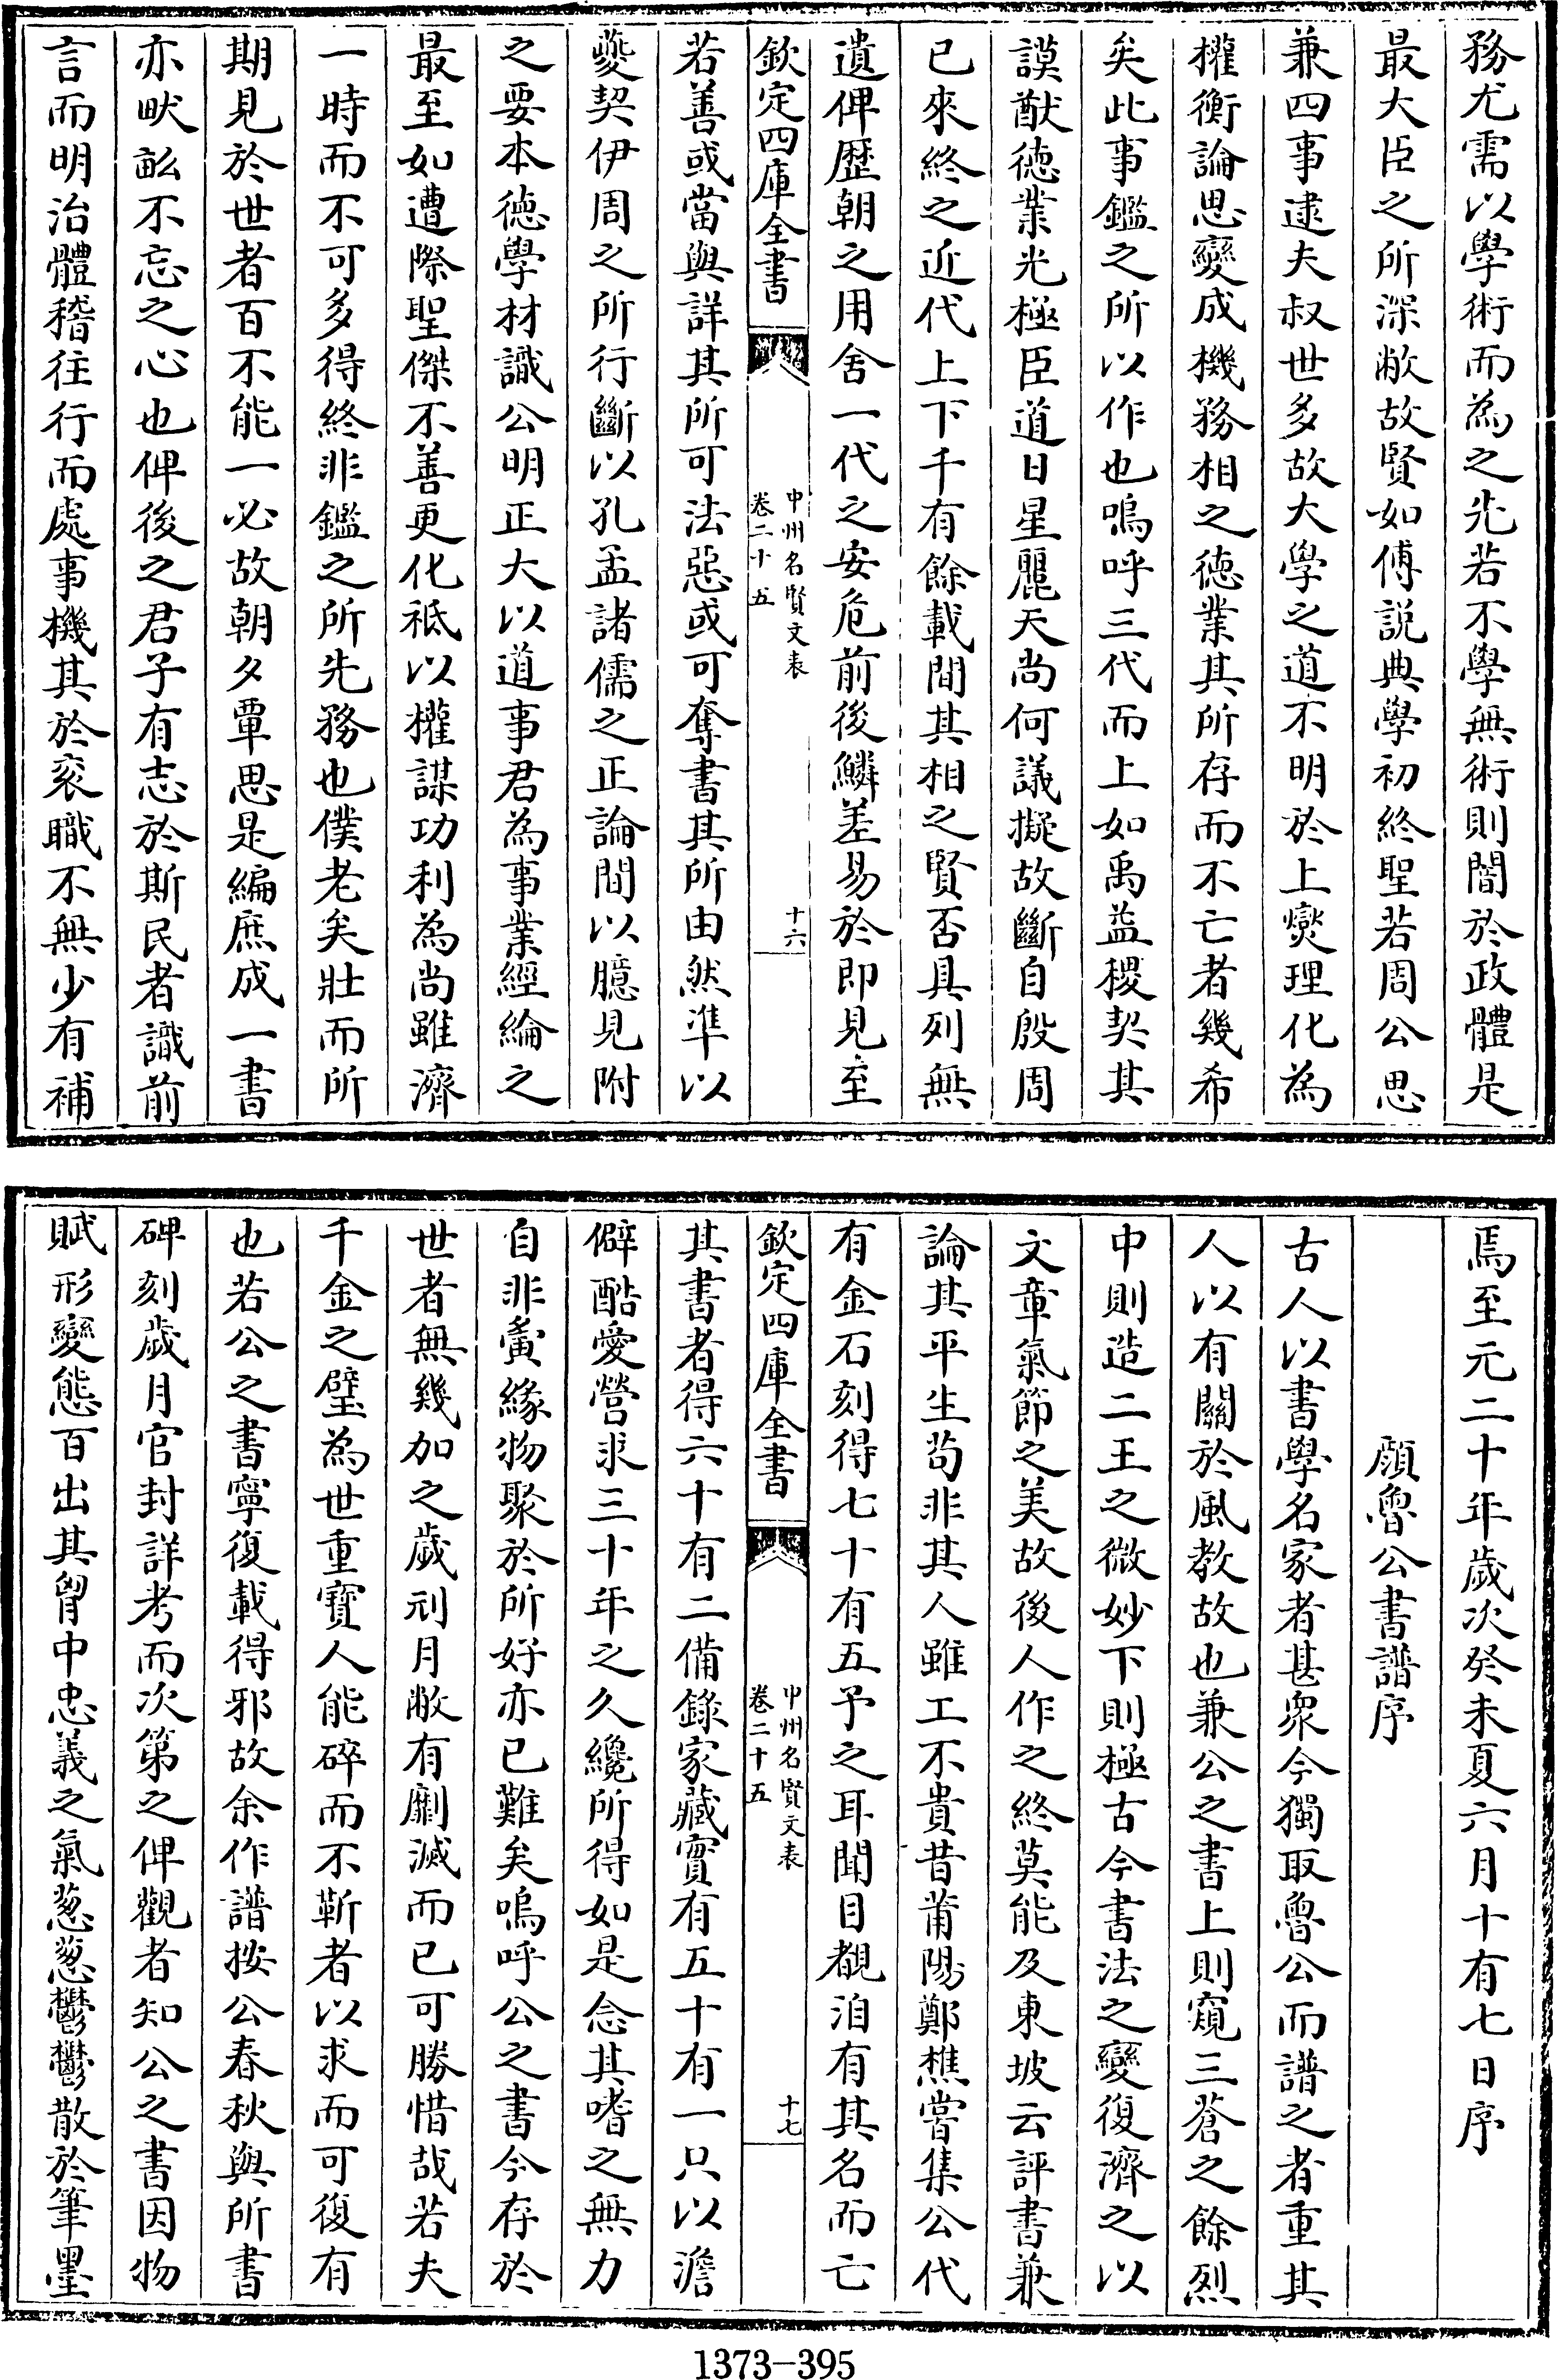 務尤需以學術而為之先若不學無術則闇於政體是
最大臣之所深敝故賢如傅説典學初終聖若周公思
兼四事逮夫叔世多故大學之道不明於上爕理化為
權衡論思變成機務相之徳業其所存而不亡者幾希
矣此事鑑之所以作也嗚呼三代而上如禹益稷契其
謨猷徳業光極臣道日星麗天尚何議擬故斷自殷周
已來終之近代上下千有餘載間其相之賢否具列無
遺俾歴朝之用舍一代之安危前後鱗差易於即見至
欽定四庫全書
中州名賢文表
卷二十五
十六
若善或當與詳其所可法惡或可奪書其所由然準以
夔契伊周之所行斷以孔孟諸儒之正論間以臆見附
之要本徳學材識公明正大以道事君為事業經綸之
最至如遭際聖傑不善更化秪以權謀功利為尚雖濟
一時而不可多得終非鑑之所先務也僕老矣壯而所
期見於世者百不能一必故朝夕覃思是編庶成一書
亦畎畝不忘之心也俾後之君子有志於斯民者識前
言而明治體稽往行而處事機其於衮職不無少有補
焉至元二十年歲次癸未夏六月十有七日序
顔魯公書譜序
古人以書學名家者甚衆今獨取魯公而譜之者重其
人以有關於風教故也兼公之書上則窺三蒼之餘烈
中則造二王之微妙下則極古今書法之變復濟之以
文章氣節之美故後人作之終莫能及東坡云評書兼
論其平生苟非其人雖工不貴昔莆陽鄭樵嘗集公代
有金石刻得七十有五予之耳聞目覩洎有其名而亡
欽定四庫全書
中州名賢文表
卷二十五
十七
其書者得六十有二備錄家藏實有五十有一只以澹
僻酷愛營求三十年之久纔所得如是念其嗜之無力
自非夤緣物聚於所好亦已難矣嗚呼公之書今存於
世者無幾加之歲刓月敝有劘滅而已可勝惜哉若夫
千金之璧為世重寶人能碎而不靳者以求而可復有
也若公之書寧復載得邪故余作譜按公春秋與所書
碑刻歲月官封詳考而次第之俾觀者知公之書因物
賦形變態百出其胷中忠義之氣葱葱鬱鬱散於筆墨
1373-395